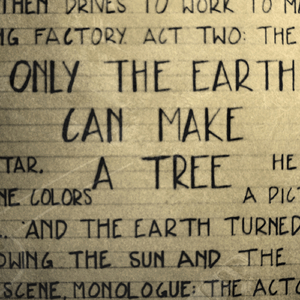 THEN DRIVES TO WORK TO
FACTORY. ACT TWO: THE
ONLY THE EARTH
CAN MAKE
A TREE
TAR. HE
COLORS A
AND THE EARTH TURNED
THE SUN AND THE
SCENE, MONOLOGUE: THE